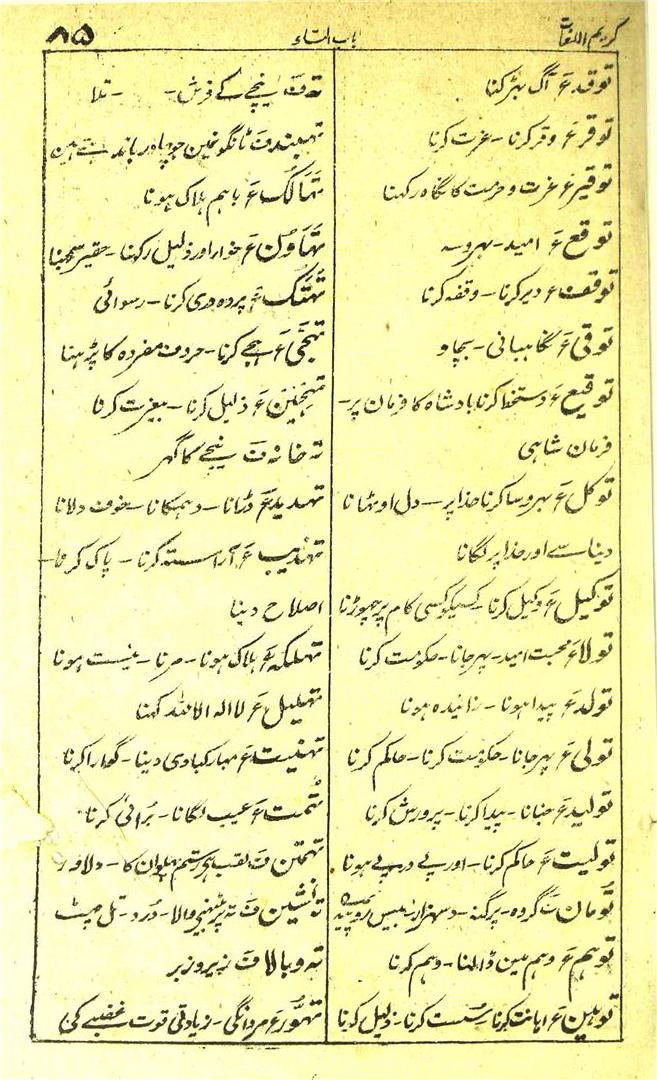 کریم اللغات
باب التاء
۸۵
توقد ع آگ بھڑکنا
توقر ع وقر کرنا - عزت کرنا
توقیر ع عزت و حرمت کا نگاہ رکھنا
توقع ع امید - بھروسہ
توقف ع دیر کرنا - وقفہ کرنا
توقی ع نگاہبانی - بچاو
توقیع ع دستخط کرنا بادشاہ کا فرمان پر -
فرمان شاہی
توکل ع بھروسا کرنا خدا پر - دل اوٹھانا
دنیا سے اور خدا پر لگانا
توکیل ع وکیل کرنا - کسیکو کسی کام پر چھوڑنا
تولا ع محبت امید - پھر جانا - حکومت کرنا
تولد ع پیدا ہونا - زائیدہ ہونا
تولی ع پھر جانا - حکومت کرنا - حاکم کرنا
تولید ع جنانا - پیدا کرنا - پرورش کرنا
تولیت ع حاکم کرنا - اور پے در پے ہونا
تومان ت گروہ - پرگنہ - دسہزار - بیس روپیہ
توہم ع وہم مین ڈالنا - وہم کرنا
توہین ع اہانت کرنا - سست کرنا - ذلیل کرنا
تہ ف نیچے کے فرش - تلا
تہبند ف ٹانگونمین جو چادر باندہتے ہین
تہالک ع باہم ہلاک ہونا
تہاون ع خوار اور ذلیل رکھنا - حقیر سمجھنا
تہتک ع پردہ دری کرنا - رسوائی
تہجی ع ہجے کرنا - حروف مفردہ کا پڑھنا
تہجین ع ذلیل کرنا - بیعزت کرنا
تہ خانہ ف نیچے کا گھر
تہدید ع ڈرانا - دھمکانا - خوف دلانا
تہذیب ع آراستہ کرنا - پاک کرنا -
اصلاح دینا
تہلکہ ع ہلاک ہونا - مرنا - نیست ہونا
تہلیل ع لا الہ الا اللہ کہنا
تہنیت ع مبارکبادی دینا - گوارا کرنا
تہمت ع عیب لگانا - برائی کرنا
تہمتن ف لقب ہی رستم پہلوان کا - دلاور
تہ نشین ف تہ پر بیٹھنے والا - درد - تل چھٹ
تہ و بالا ف زیر و زبر
تہور ع مردانگی - زیادتی قوت غضبے کی